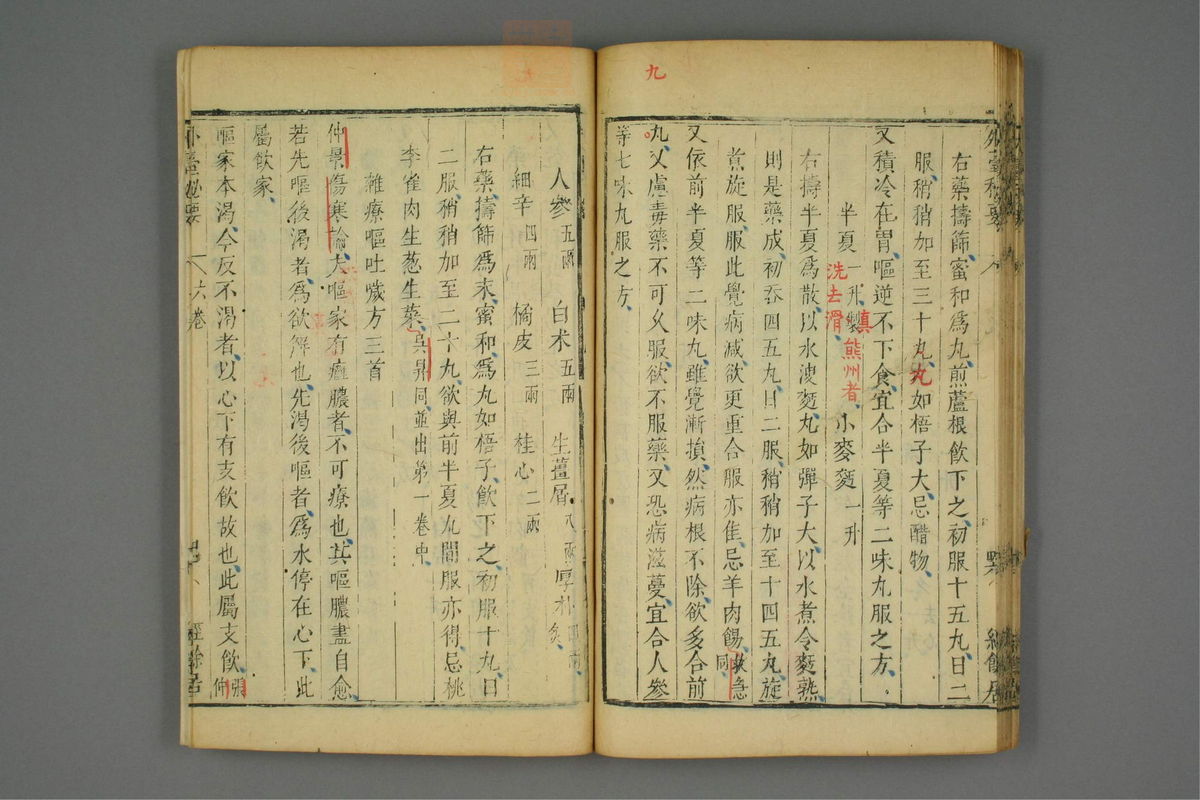 九
右藥擣篩蜜和爲丸煎蘆根飲下之初服十五丸日二
服稍稍加至三十丸丸如梧子大忌醋物
又積冷在胃嘔逆不下食宜合半夏等二味丸服之方
半夏一升製洗去滑真熊州者小麥麪一升
右擣半夏爲散以水溲麪丸如彈子大以水煮令麪熟
則是藥成初吞四五丸日二服稍稍加至十四五丸旋
煮旋服服此覺病減欲更重合服亦佳忌羊肉餳救急同
又依前半夏等二味丸雖覺漸損然病根不除欲多合前
丸又慮毒藥不可久服欲不服藥又恐病滋蔓宜合人參
等七味丸服之方
人參五兩 白朮五兩 生薑屑八兩 厚朴四兩炙
細辛四兩 橘皮三兩 桂心二兩
右藥擣篩爲末蜜和爲丸如梧子飲下之初服十丸日
二服稍稍加至二十丸欲與前半夏丸間服亦得忌桃
李雀肉生葱生菜吳昇同並出第一卷中
雜療嘔吐噦方三首
仲景傷寒論大嘔家有癰膿者不可療也其嘔膿盡自愈
若先嘔後渴者爲欲解也先渴後嘔者爲水停在心下此
屬飲家
嘔家本渴今反不渴者以心下有支飲故也此屬支飲張仲
外臺秘要 六卷 經餘居